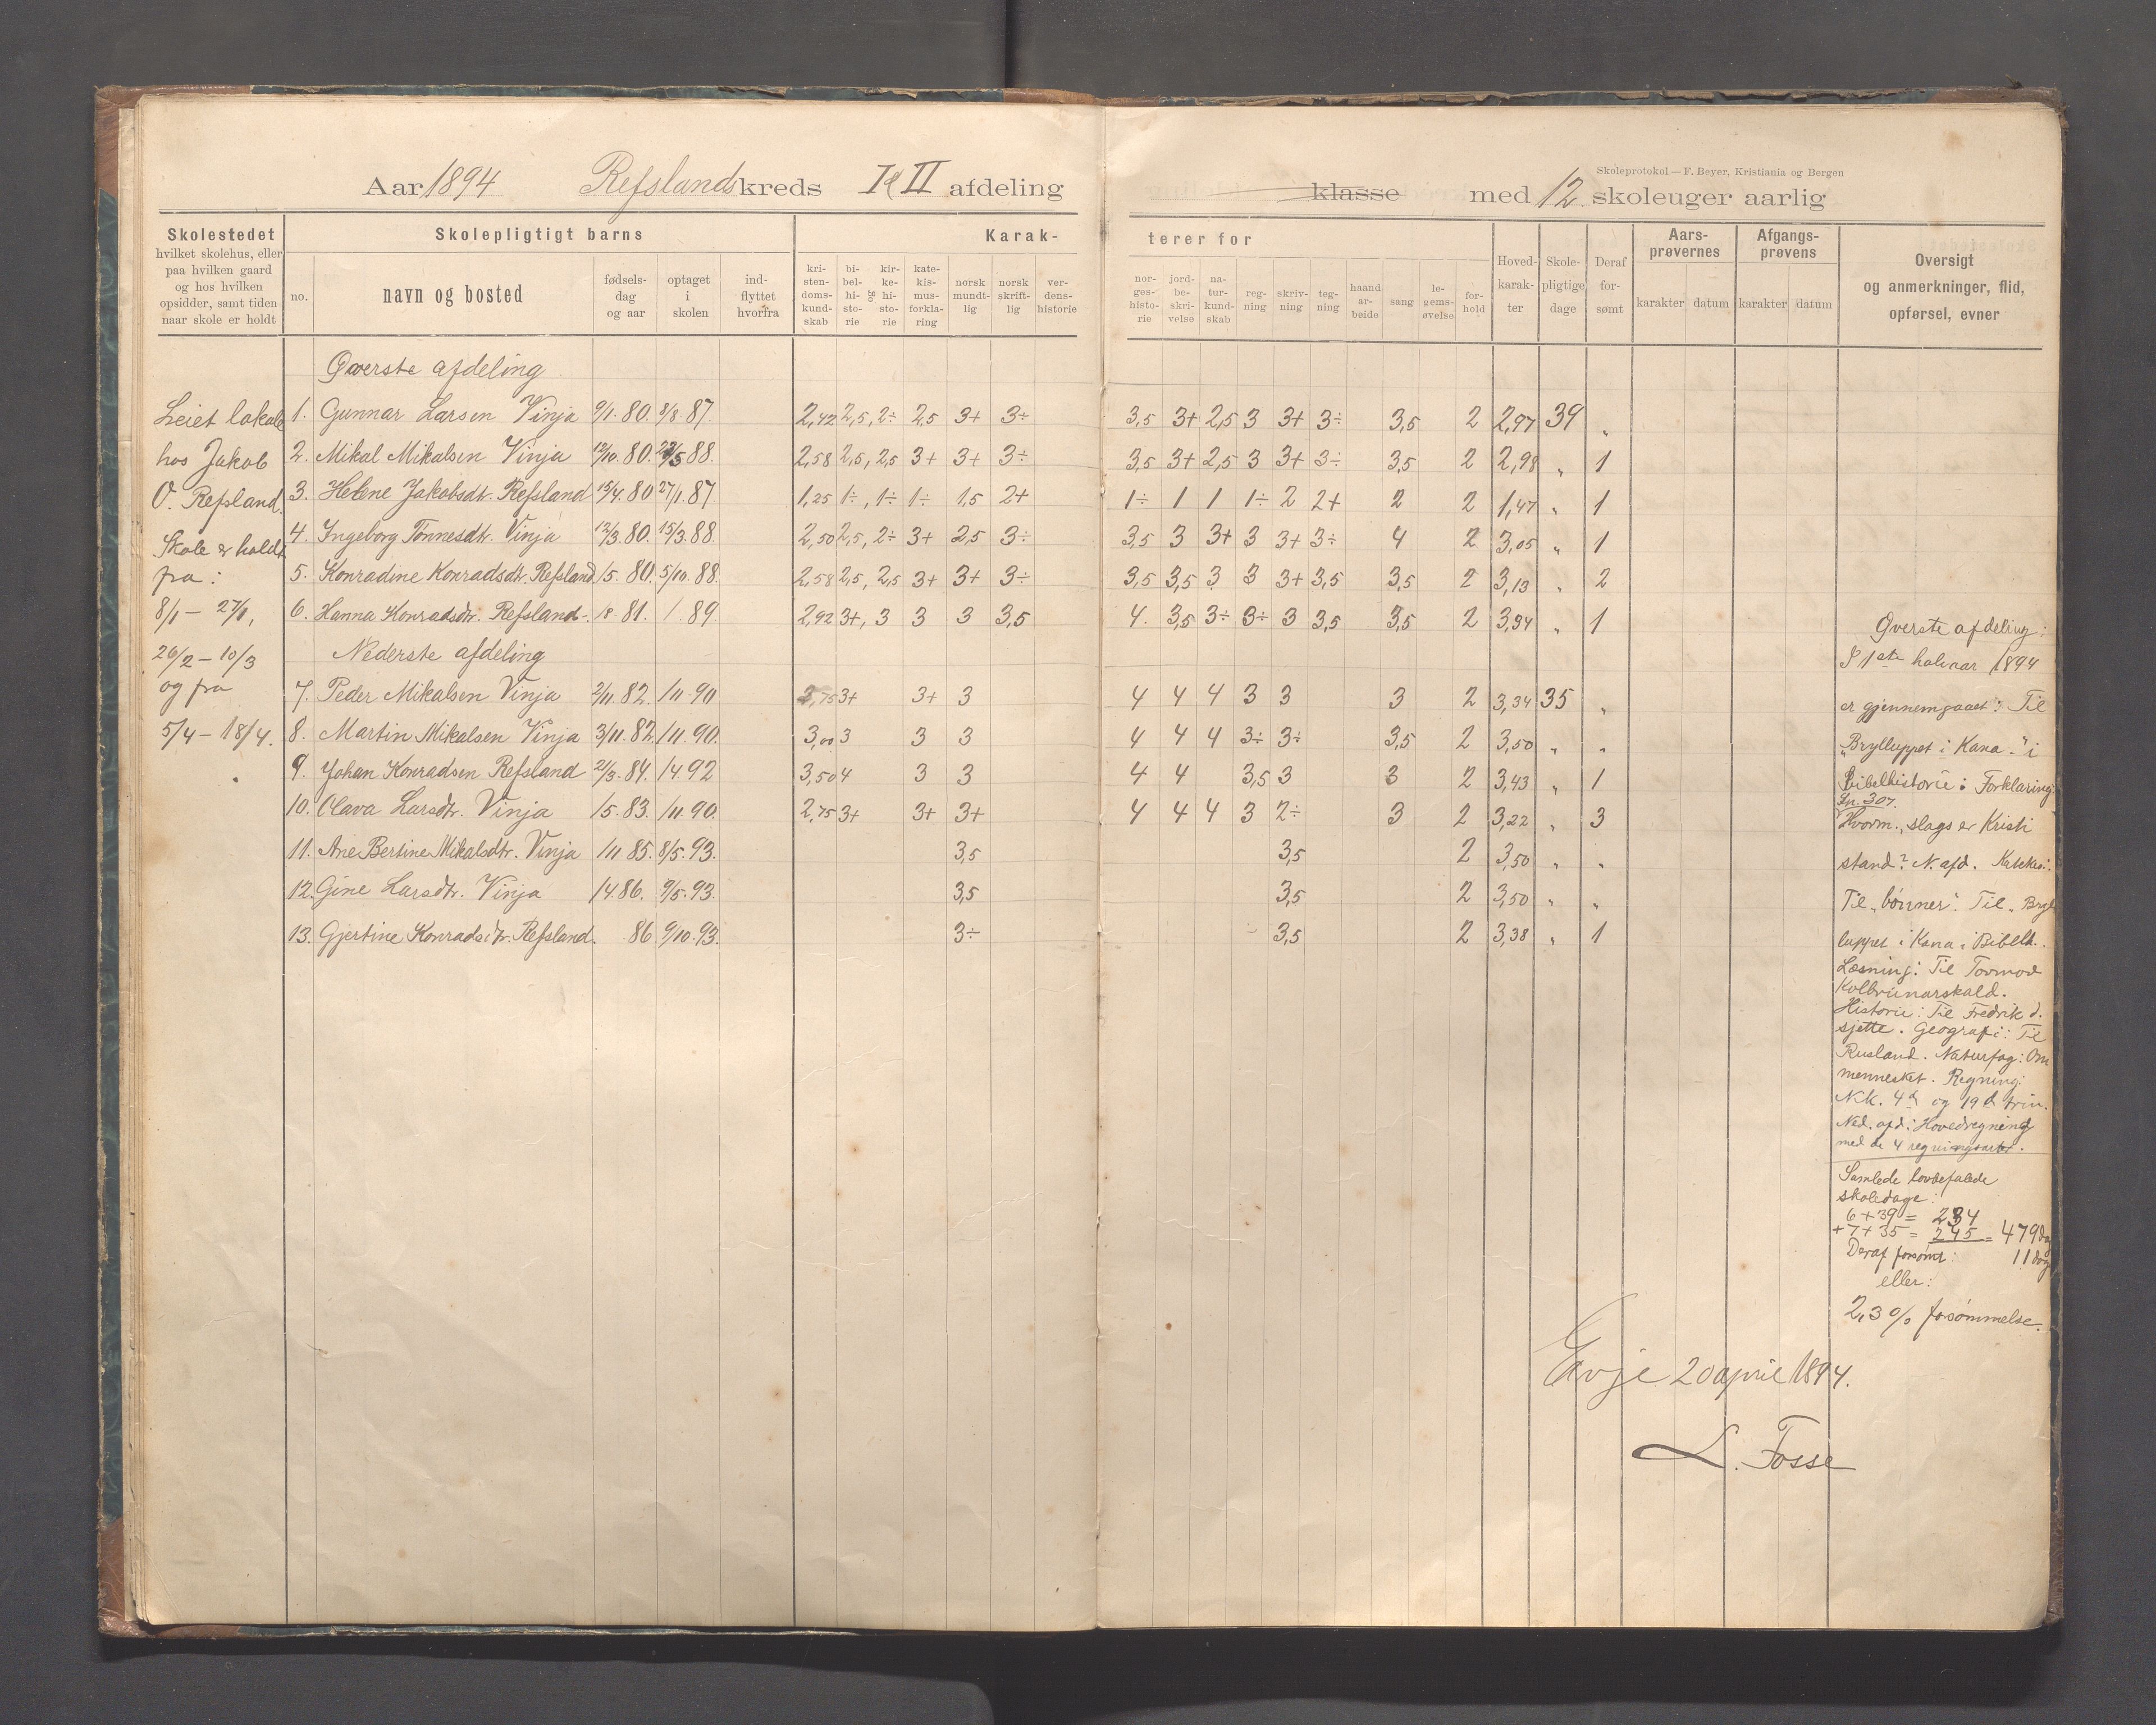 Skoleprotokol — F. Beyer, Kristiania og Bergen
Aar 1894 Refslands kreds I & II afdeling klasse med 12 skoleuger aarlig
Skolestedet
hvilket skolehus, eller
paa hvilken gaard
og hos hvilken
opsidder, samt tiden
naar skole er holdt
Skolepligtigt barns
no. navn og bosted
fødsels-
dag
og aar
optaget
i
skolen
ind-
flyttet
hvorfra
Karak-
kri-
sten-
doms-
kund-
skab
bi-
bel-
hi-
sto-
rie
og
kir-
ke-
hi-
sto-
rie
kate-
kis-
mus-
forkla-
ring
norsk
mundt-
lig
norsk
skrift-
lig
ver-
dens-
historie
terer for
nor-
ges-
histo-
rie
jord-
be-
skri-
velse
na-
tur-
kund-
skab
reg-
ning
skriv-
ning
teg-
ning
haand
ar-
beide
sang
le-
gems-
øvelse
for-
hold
Hoved-
karak-
ter
Skole-
pligtige
dage
Deraf
for-
sømt
Aars-
prøvernes
karakter datum
Afgangs-
prøvens
karakter datum
Oversigt
og anmerkninger, flid,
opførsel, evner
Leiet lokale
hos Jakob
O. Refsland.
Skole er holdt
fra:
8/1 – 27/1,
26/2 – 10/3
og fra
5/4 – 18/4.
Øverste afdeling
1. Gunnar Larsen Vinja 9/1. 80. 8/8. 87. 2,42 2,5, 2÷ 2,5 3+ 3÷ 3,5 3+ 2,5 3 3+ 3÷ 3,5 2 2,97 39 "
2. Mikal Mikalsen Vinja 12/10. 80. 27/5 88. 2,58 2,5, 2,5 3+ 3+ 3÷ 3,5 3+ 2,5 3 3+ 3÷ 3,5 2 2,98 " 1
3. Helene Jakobsdtr. Refsland 15/4. 80 27/1. 87. 1,25 1÷, 1÷ 1÷ 1,5 2+ 1÷ 1 1 1÷ 2 2+ 2 2 1,47 " 1
4. Ingeborg Tønnesdtr. Vinja 12/3. 80. 15/3. 88. 2,50 2,5, 2÷ 3+ 2,5 3÷ 3,5 3 3+ 3 3+ 3÷ 4 2 3,05 " 1
5. Konradine Konradsdtr. Refsland 1/5. 80. 5/10. 88. 2,58 2,5, 2,5 3+ 3+ 3÷ 3,5 3,5 3 3 3+ 3,5 3,5 2 3,13 " 2
6. Hanna Konradsdtr. Refsland- 18 81. 1. 89. 2,92 3+, 3 3 3 3,5 4. 3,5 3÷ 3÷ 3 3,5 3,5 2 3,34 " 1
Nederste afdeling
7. Peder Mikalsen Vinja 2/11. 82. 1/11. 90 2,75 3+ 3+ 3 4 4 4 3 3 3 2 3,34 35 "
8. Martin Mikalsen Vinja 3/11. 82. 1/11. 90. 3,00 3 3 3 4 4 4 3÷ 3÷ 3,5 2 3,50 " "
9. Johan Konradsen Refsland 2/3. 84. 1/4 92 3,50 4 3 3 4 4 3,5 3 3 2 3,43 " 1
10. Olava Larsdtr. Vinja 1/5. 83. 1/11. 90. 2,75 3+ 3+ 3+ 4 4 4 3 2÷ 3 2 3,22 " 3
11. Ane Bertine Mikalsdtr. Vinja 1/11 85. 8/5. 93. 3,5 3,5 2 3,50 " "
12. Gine Larsdtr. Vinja 1/4 86. 9/5. 93. 3,5 3,5 2 3,50 " "
13. Gjertine Konradsdtr. Refsland. 86 9/10. 93. 3÷ 3,5 2 3,38 " 1
Øverste afdeling:
I 1ste halvaar 1894
er gjennemgaaet: Til
„Brylluppet i Kana." i
Bibelhistorie: Forklaring
Sp. 307.
Hvorm. slags er Kristi
stand? N. afd. Katekis:
Til „bønner". Til „Bryl
luppet i Kana i Bibelh.
Læsning: Til Tormod
Kolbrunarskald.
Historie: Til Fredrik d.
sjette. Geografi: Til
Rusland. Naturfag: Om
mennesket. Regning:
N.k. 4d og 19d trin.
Ned. afd: Hovedregning
med de 4 regningsarter.
Samlede lovbefalede
skoledage:
6 + 39 = 234
+ 7 + 35 = 245 = 479 dag
Deraf forsømt: 11 dag
eller:
2,3 % forsømmelse.
Evje 20 april 1894.
L. Fosse